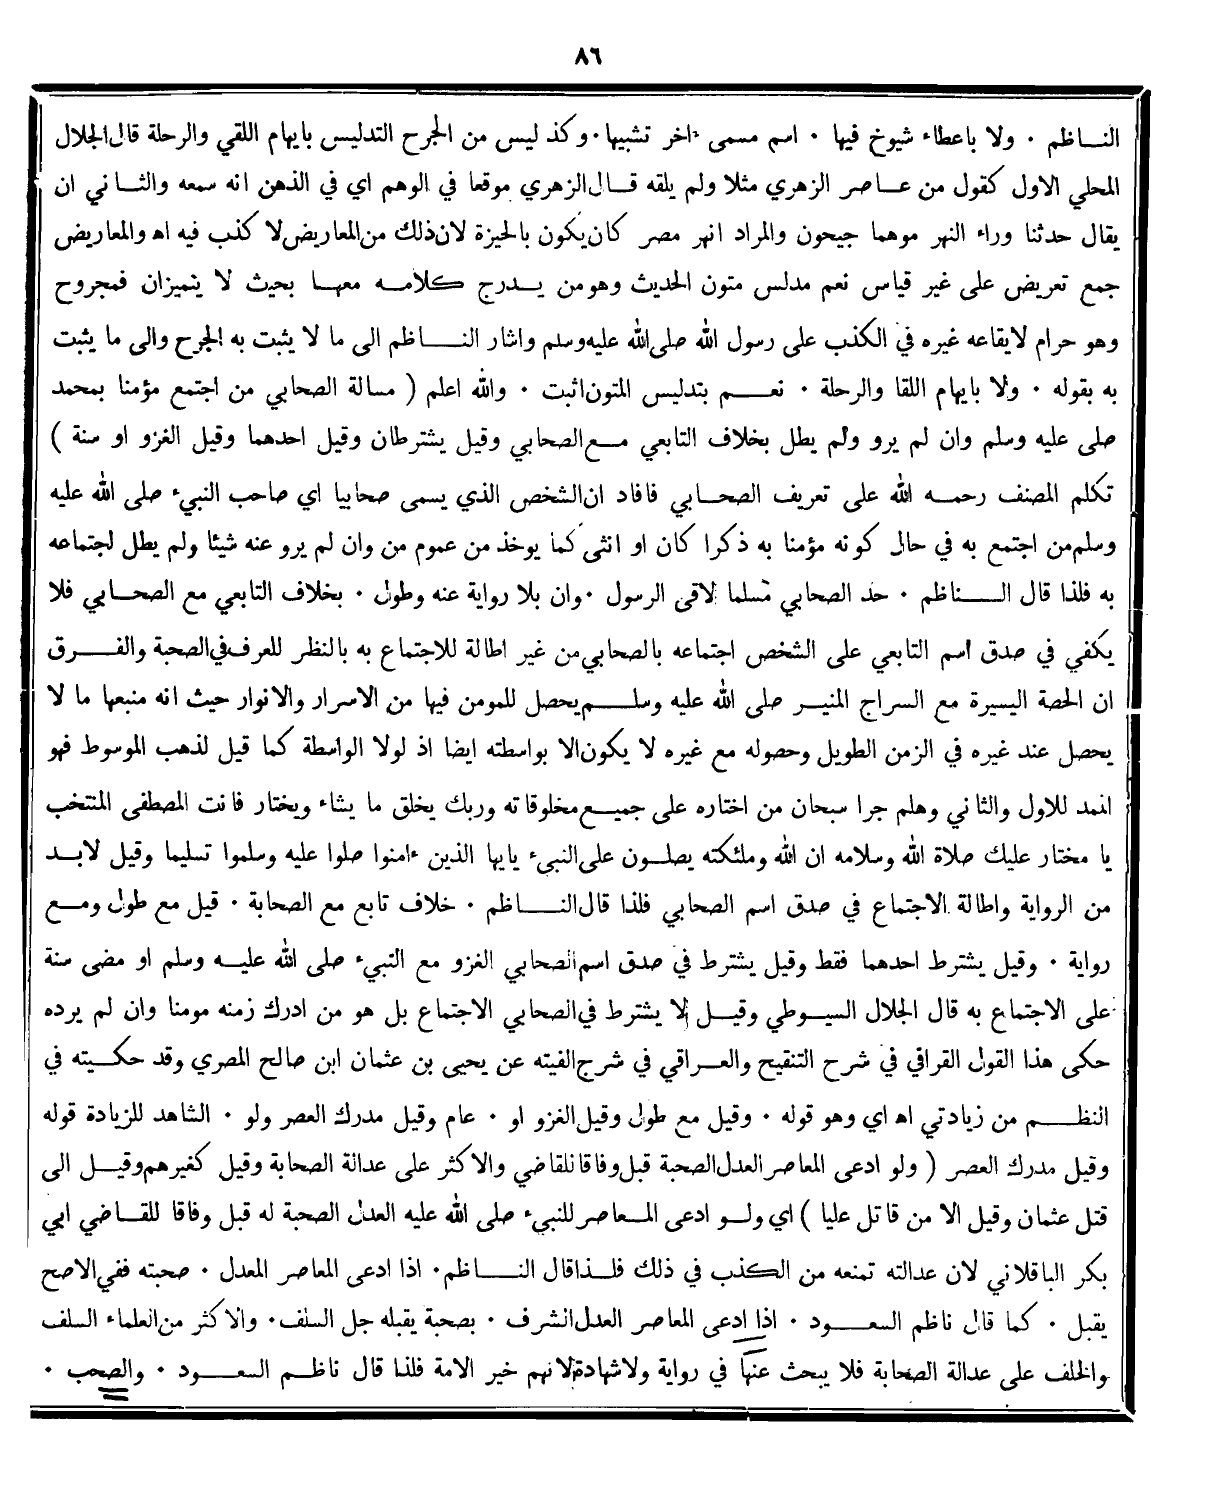 ٨٦
الناظم ۰ ولا باعطاء شيوخ فيها ۰ اسم مسمى ءاخر تشبيها ۰ وكذ ليس من الجرح التدليس بايهام اللقي والرحلة قال الجلال
المحلي الاول كقول من عاصر الزهري مثلا ولم يلقه قال الزهري موقعا في الوهم اي في الذهن انه سمعه والثاني ان
يقال حدثنا وراء النهر موهما جيحون والمراد انهر مصر كان يكون بالجيزة لان ذلك من المعاريض لا كذب فيه اه والمعاريض
جمع تعريض على غير قياس نعم مدلس متون الحديث وهو من يدرج كلامه معها بحيث لا يتميزان فمجروح
وهو حرام لايقاعه غيره في الكذب على رسول الله صلى الله عليه وسلم واشار الناظم الى ما لا يثبت به الجرح والى ما يثبت
به بقوله ۰ ولا بايهام اللقا والرحلة ۰ نعم بتدليس المتون اثبت ۰ والله اعلم ( مسالة الصحابي من اجتمع مؤمنا بمحمد
صلى عليه وسلم وان لم يرو ولم يطل بخلاف التابعي مع الصحابي وقيل يشترطان وقيل احدهما وقيل الغزو او سنة )
تكلم المصنف رحمه الله على تعريف الصحابي فافاد ان الشخص الذي يسمى صحابيا اي صاحب النبيء صلى الله عليه
وسلم من اجتمع به في حال كونه مؤمنا به ذكرا كان او انثى كما يوخذ من عموم من وان لم يرو عنه شيئا ولم يطل اجتماعه
به فلذا قال الناظم ۰ حد الصحابي مسلما لاقى الرسول ۰ وان بلا رواية عنه وطول ۰ بخلاف التابعي مع الصحابي فلا
يكفي في صدق اسم التابعي على الشخص اجتماعه بالصحابي من غير اطالة للاجتماع به بالنظر للعرف في الصحبة والفرق
ان الحصة اليسيرة مع السراج المنير صلى الله عليه وسلم يحصل للمومن فيها من الاسرار والانوار حيث انه منبعها ما لا
يحصل عند غيره في الزمن الطويل وحصوله مع غيره لا يكون الا بواسطته ايضا اذ لولا الواسطة كما قيل لذهب الموسوط فهو
الممد للاول والثاني وهلم جرا سبحان من اختاره على جميع مخلوقاته وربك يخلق ما يشاء ويختار فانت المصطفى المنتخب
يا مختار عليك صلاة الله وسلامه ان الله وملئكته يصلون على النبيء يايها الذين ءامنوا صلوا عليه وسلموا تسليما وقيل لابد
من الرواية واطالة الاجتماع في صدق اسم الصحابي فلذا قال الناظم ۰ خلاف تابع مع الصحابة ۰ قيل مع طول ومع
رواية ۰ وقيل يشترط احدهما فقط وقيل يشترط في صدق اسم الصحابي الغزو مع النبيء صلى الله عليه وسلم او مضى سنة
على الاجتماع به قال الجلال السيوطي وقيل لا يشترط في الصحابي الاجتماع بل هو من ادرك زمنه مومنا وان لم يرده
حكى هذا القول القرافي في شرح التنقيح والعراقي في شرح الفيته عن يحيى بن عثمان ابن صالح المصري وقد حكيته في
النظم من زيادتي اه اي وهو قوله ۰ وقيل مع طول وقيل الغزو او ۰ عام وقيل مدرك العصر ولو ۰ الشاهد للزيادة قوله
وقيل مدرك العصر ( ولو ادعى المعاصر العدل الصحبة قبل وفاقا للقاضي والاكثر على عدالة الصحابة وقيل كغيرهم وقيل الى
قتل عثمان وقيل الا من قاتل عليا ) اي ولو ادعى المعاصر للنبيء صلى الله عليه العدل الصحبة له قبل وفاقا للقاضي ابي
بكر الباقلاني لان عدالته تمنعه من الكذب في ذلك فلذا قال الناظم ۰ اذا ادعى المعاصر المعدل ۰ صحبته ففي الاصح
يقبل ۰ كما قال ناظم السعود ۰ اذا ادعى المعاصر العدل الشرف ۰ بصحبة يقبله جل السلف ۰ والاكثر من العلماء السلف
والخلف على عدالة الصحابة فلا يبحث عنها في رواية ولا شهادة لانهم خير الامة فلذا قال ناظم السعود ۰ والصحب ۰